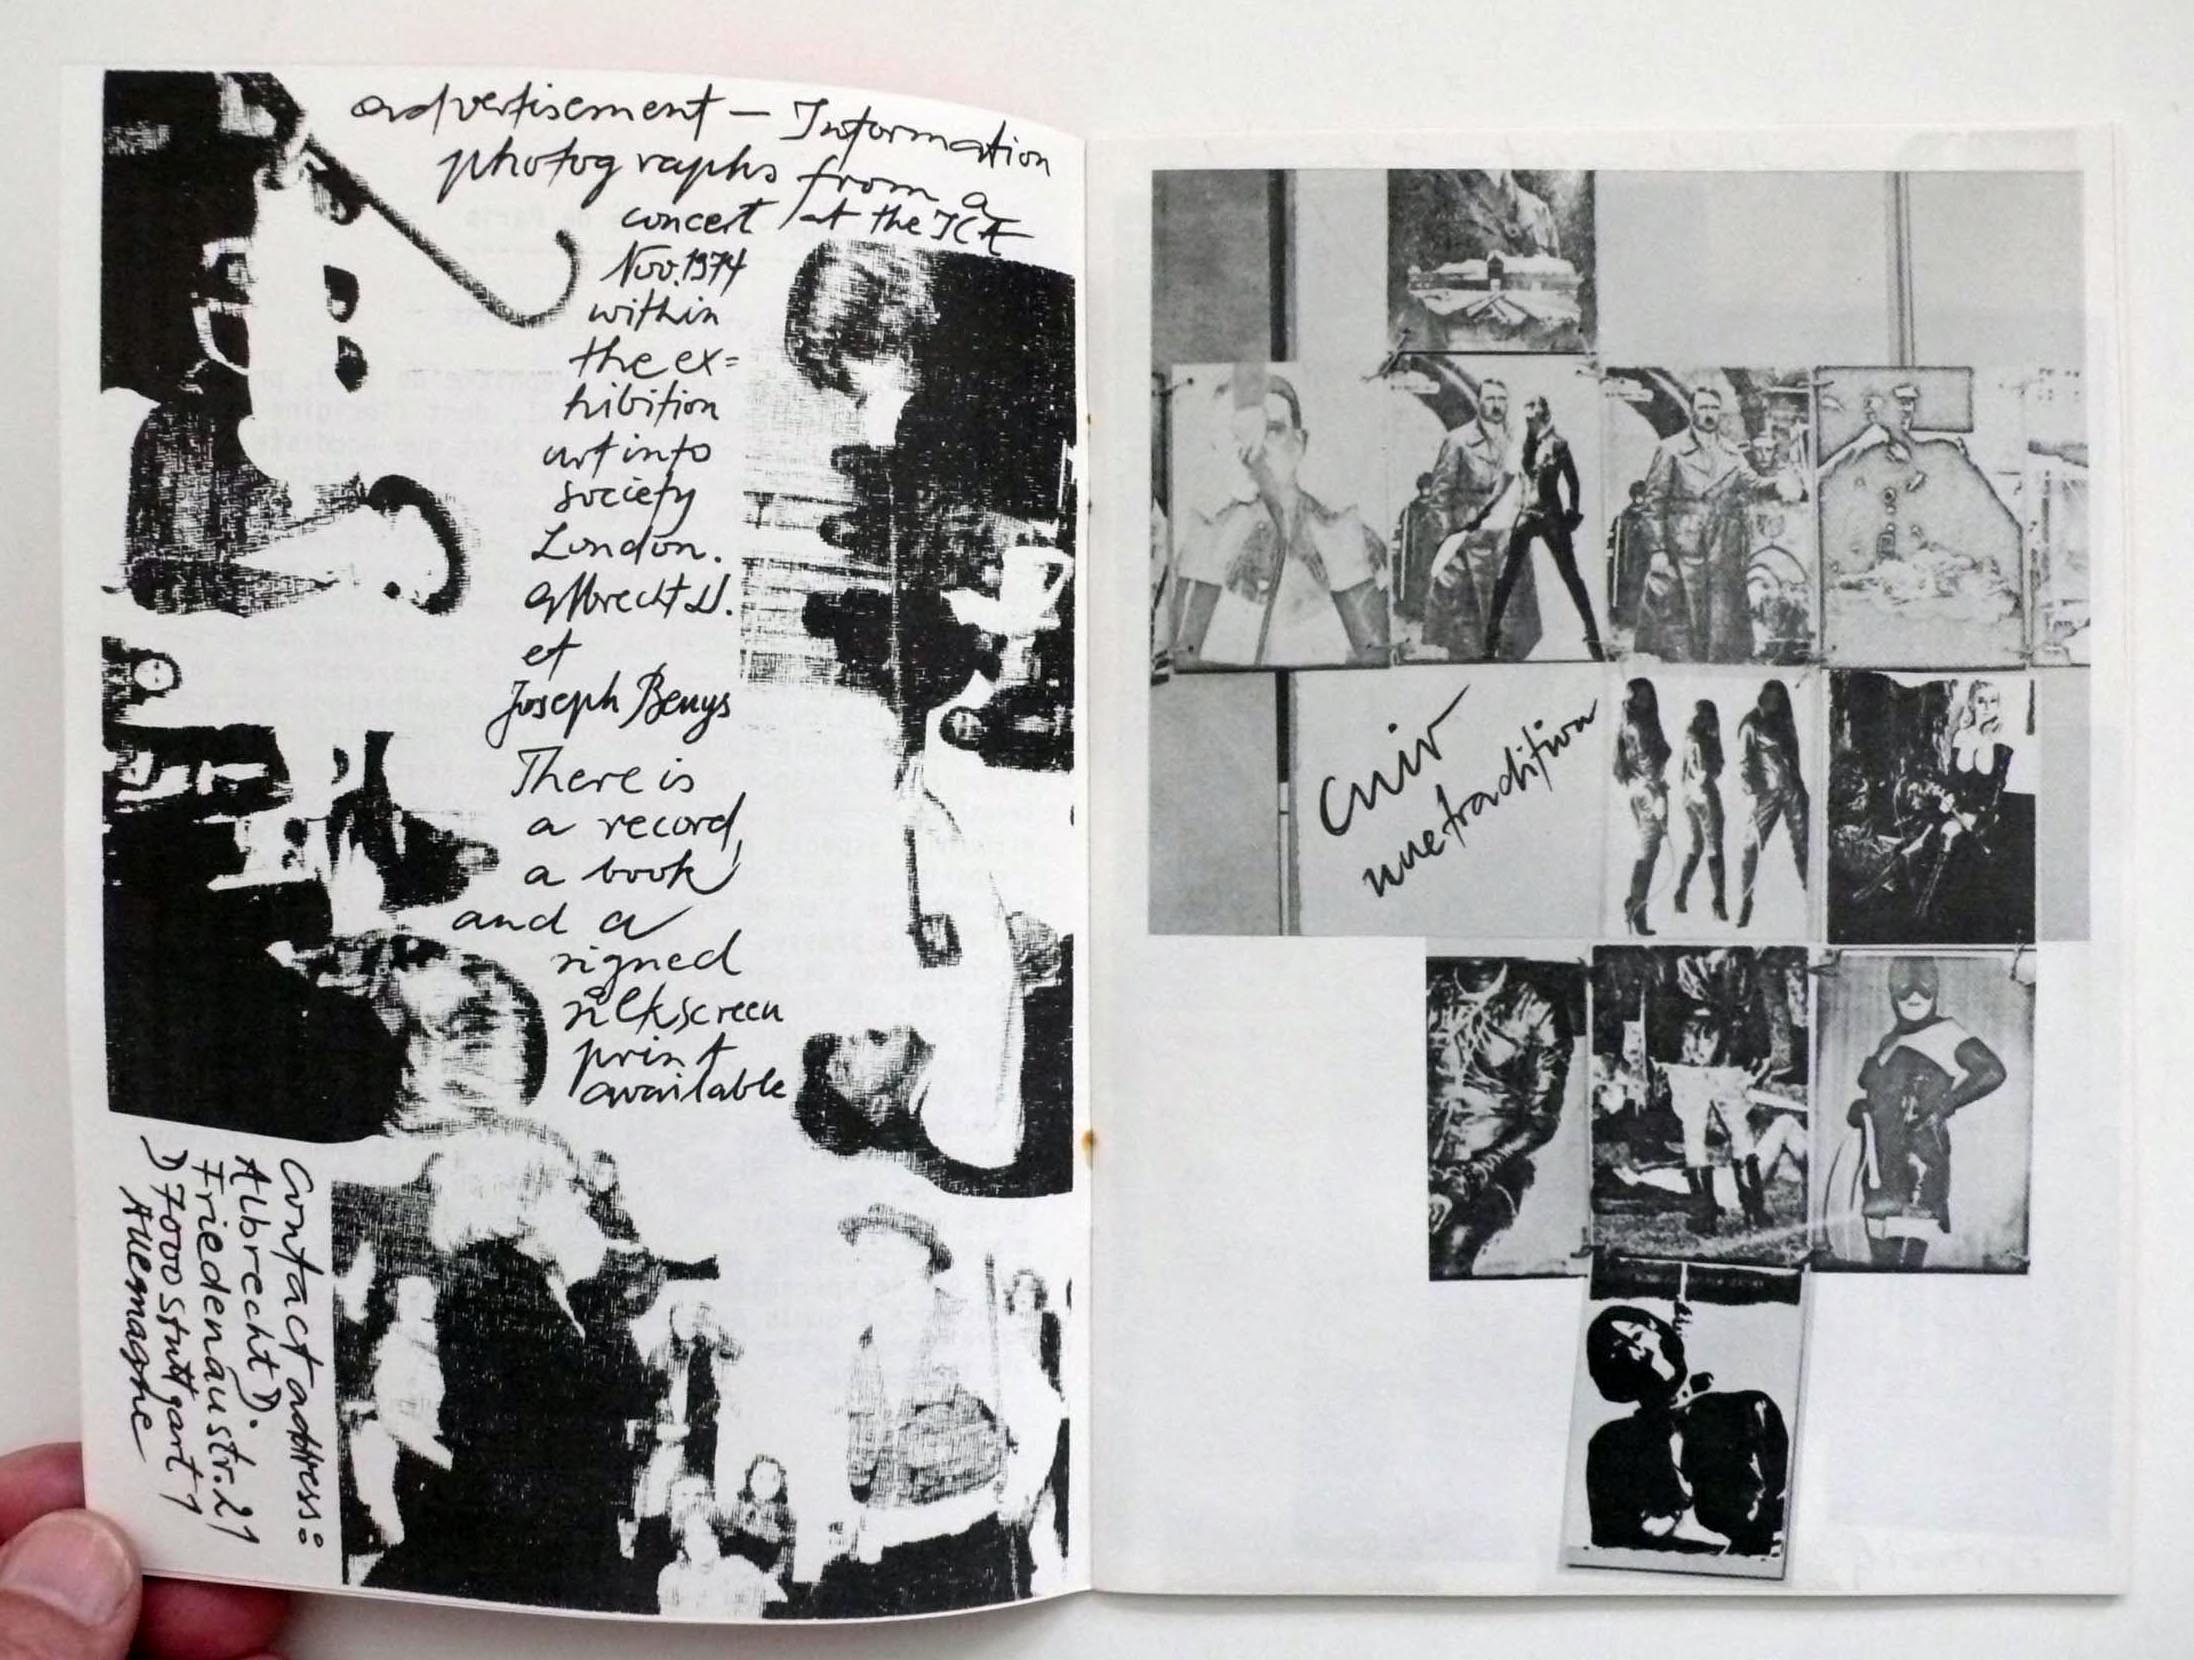 advertisement – Information
photographs from a
concert at the ICA
Nov. 1974
within
the ex=
hibition
art into
society
London.
Albrecht D.
et
Joseph Beuys
There is
a record,
a book
and a
signed
silkscreen
print
available
Contact address:
Albrecht D.
Friedenaustr. 21
D 7000 Stuttgart 1
Allemagne
Cuir
une tradition